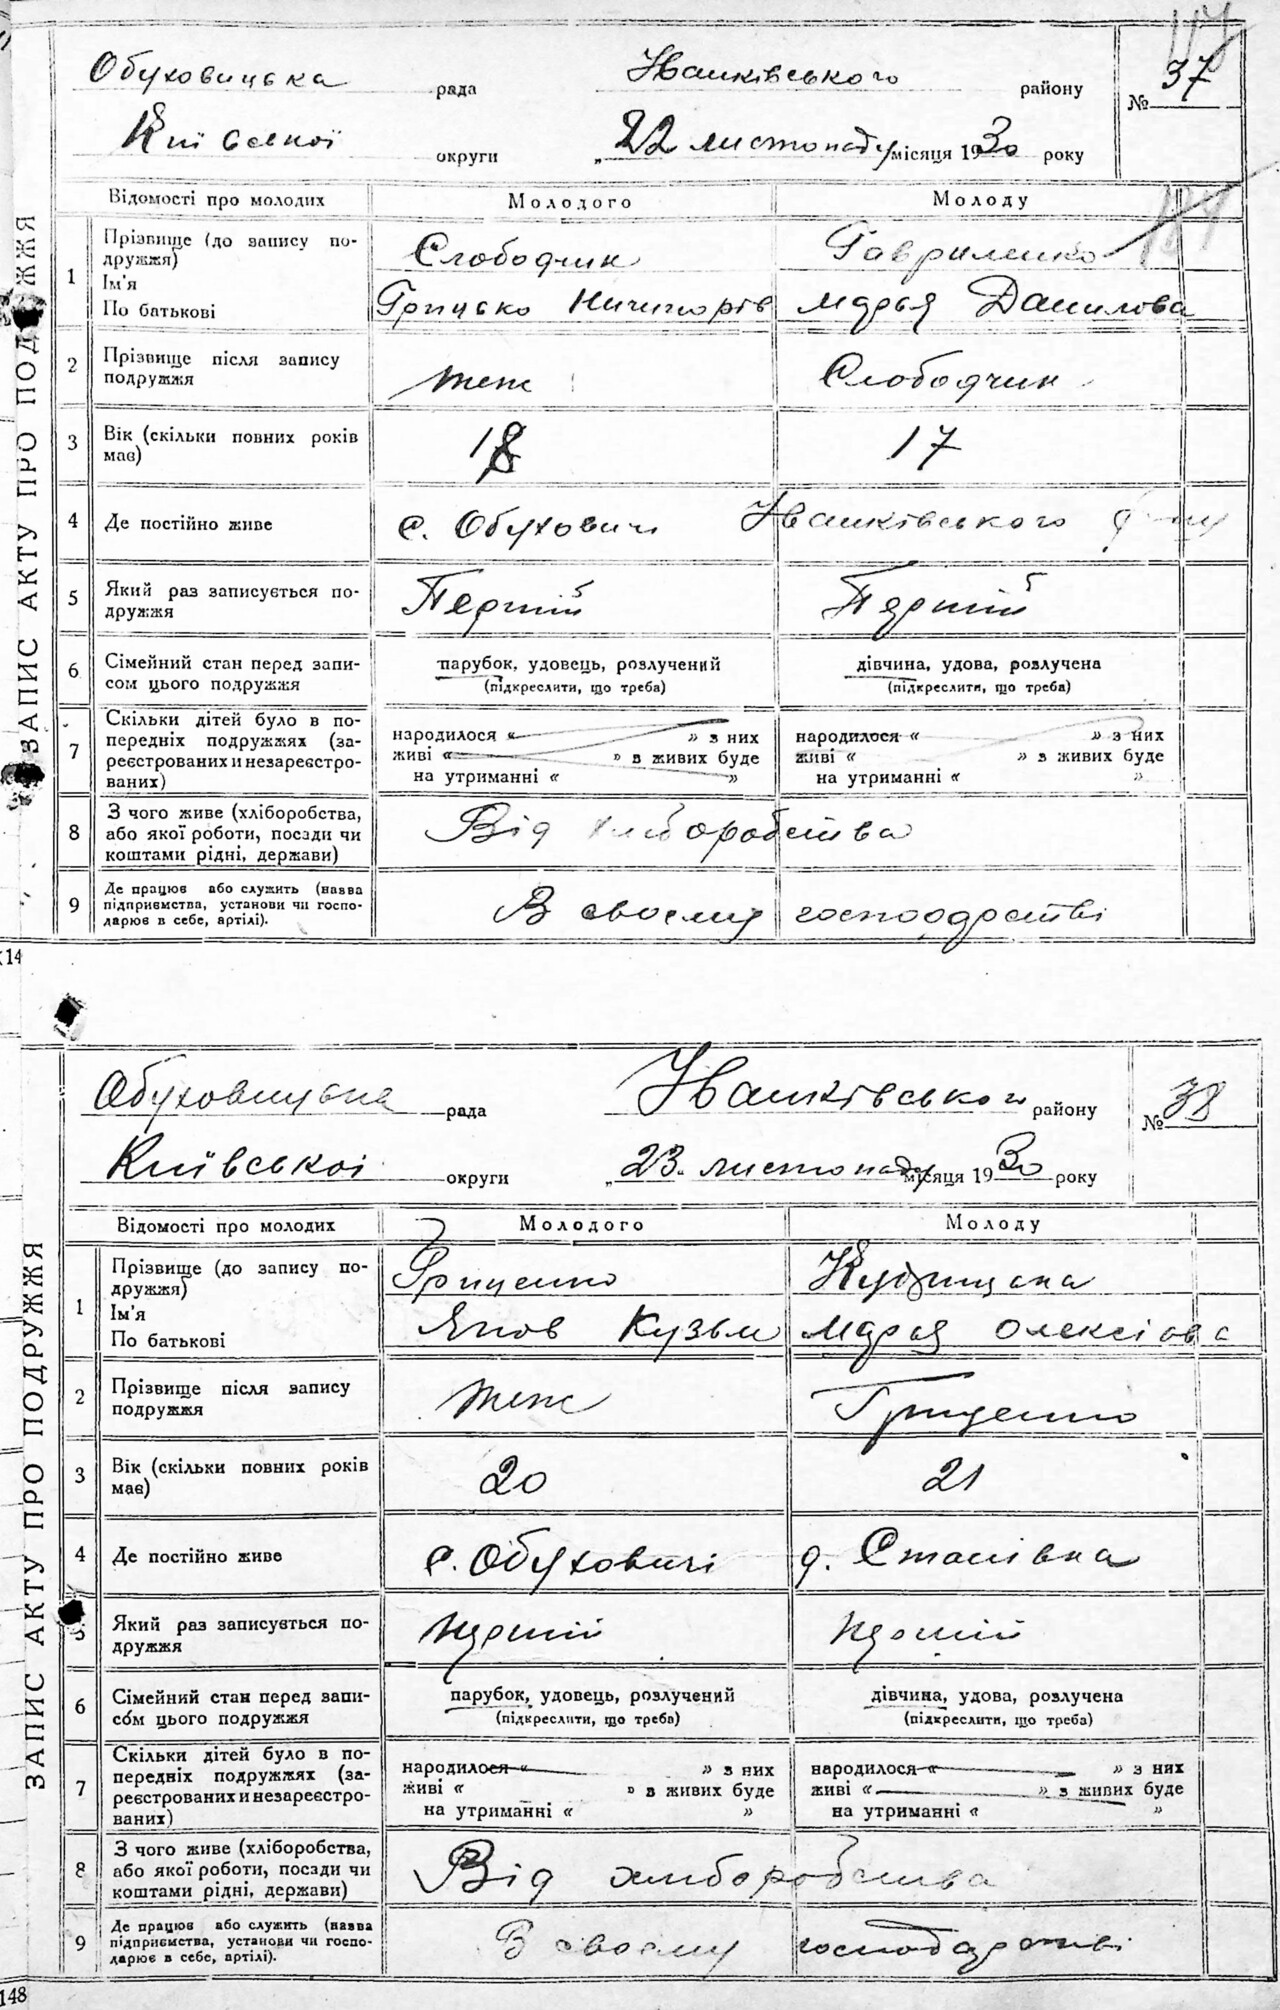 Обуховицька рада Іванківського району № 37
Київської округи „ 22 листопаду місяця 1930 року
ЗАПИС АКТУ ПРО ПОДРУЖЖЯ
Відомості про молодих Молодого Молоду
1 Прізвище (до запису по- Слободчик Гавриленко
дружжя)
Ім'я
По батькові Грицько Ничипорів Марья Данилова
2 Прізвище після запису
подружжя теж Слободчик
3 Вік (скільки повних років 18 17
має)
4 Де постійно живе с. Обуховичі Іванківського
5 Який раз записується по- Перший Перший
дружжя
6 Сімейний стан перед запи- парубок, удовець, розлучений дівчина, удова, розлучена
сом цього подружжя (підкреслити, що треба) (підкреслити, що треба)
7 Скільки дітей було в по- народилося « » з них народилося « » з них
передніх подружжях (за- живі « » в живих буде живі « » з живих буде
реєстрованих и незареєстро- на утриманні « » на утриманні « »
ваних)
8 З чого живе (хліборобства, Від хліборобства
або якої роботи, посади чи
коштами рідні, держави)
9 Де працює або служить (назва В своєму господарстві
підприємства, установи чи госпо-
дарює в себе, артілі).
14
Обуховицька рада Іванківського району № 38
Київської округи „ 23 листопаду місяця 1930 року
ЗАПИС АКТУ ПРО ПОДРУЖЖЯ
Відомості про молодих Молодого Молоду
1 Прізвище (до запису по- Гриценко
дружжя)
Ім'я
По батькові Яков Кузьм Марья Олексіова
2 Прізвище після запису
подружжя теж Гриценко
3 Вік (скільки повних років 20 21
має)
4 Де постійно живе с. Обуховичі д. Станівка
5 Який раз записується по- перший перший
дружжя
6 Сімейний стан перед запи- парубок, удовець, розлучений дівчина, удова, розлучена
сом цього подружжя (підкреслити, що треба) (підкреслити, що треба)
7 Скільки дітей було в по- народилося « » з них народилося « » з них
передніх подружжях (за- живі « » в живих буде живі « » з живих буде
реєстрованих и незареєстро- на утриманні « » на утриманні « »
ваних)
8 З чого живе (хліборобства, Від хліборобства
або якої роботи, посади чи
коштами рідні, держави)
9 Де працює або служить (назва В своєму господарстві
підприємства, установи чи госпо-
дарює в себе, артілі).
148